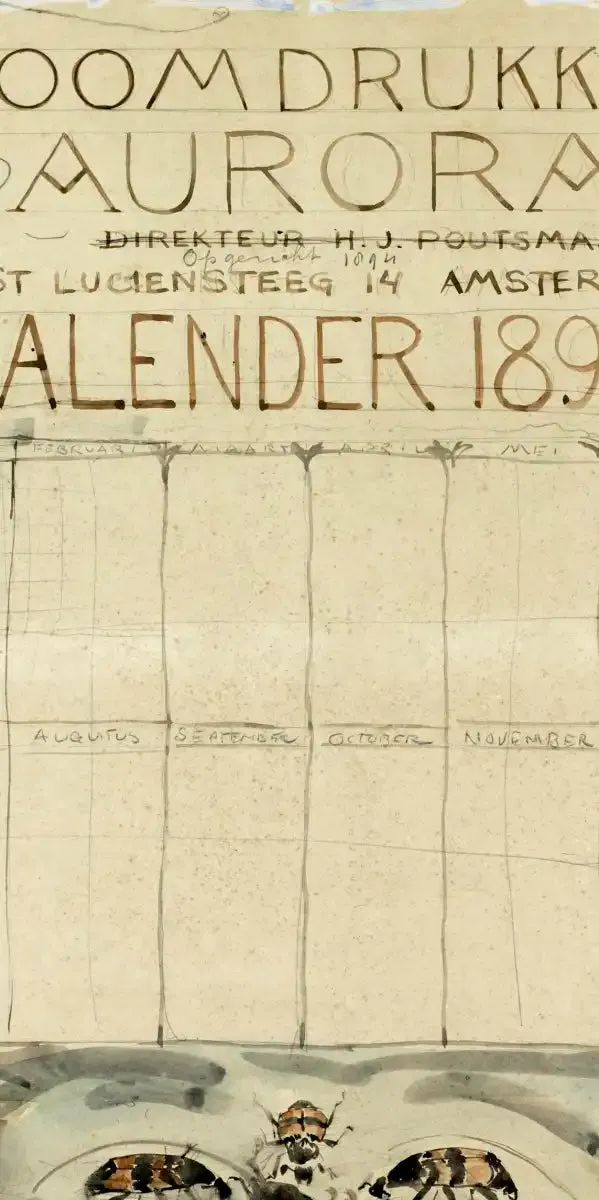 OOMDRUKK
AURORA
DIREKTEUR H.J. POUTSMA
Opgericht 1894
ST LUCIENSTEEG 14 AMSTER
ALENDER 189
FEBRUARI MAART APRIL MEI
AUGUTUS SEPTEMBER OCTOBER NOVEMBER